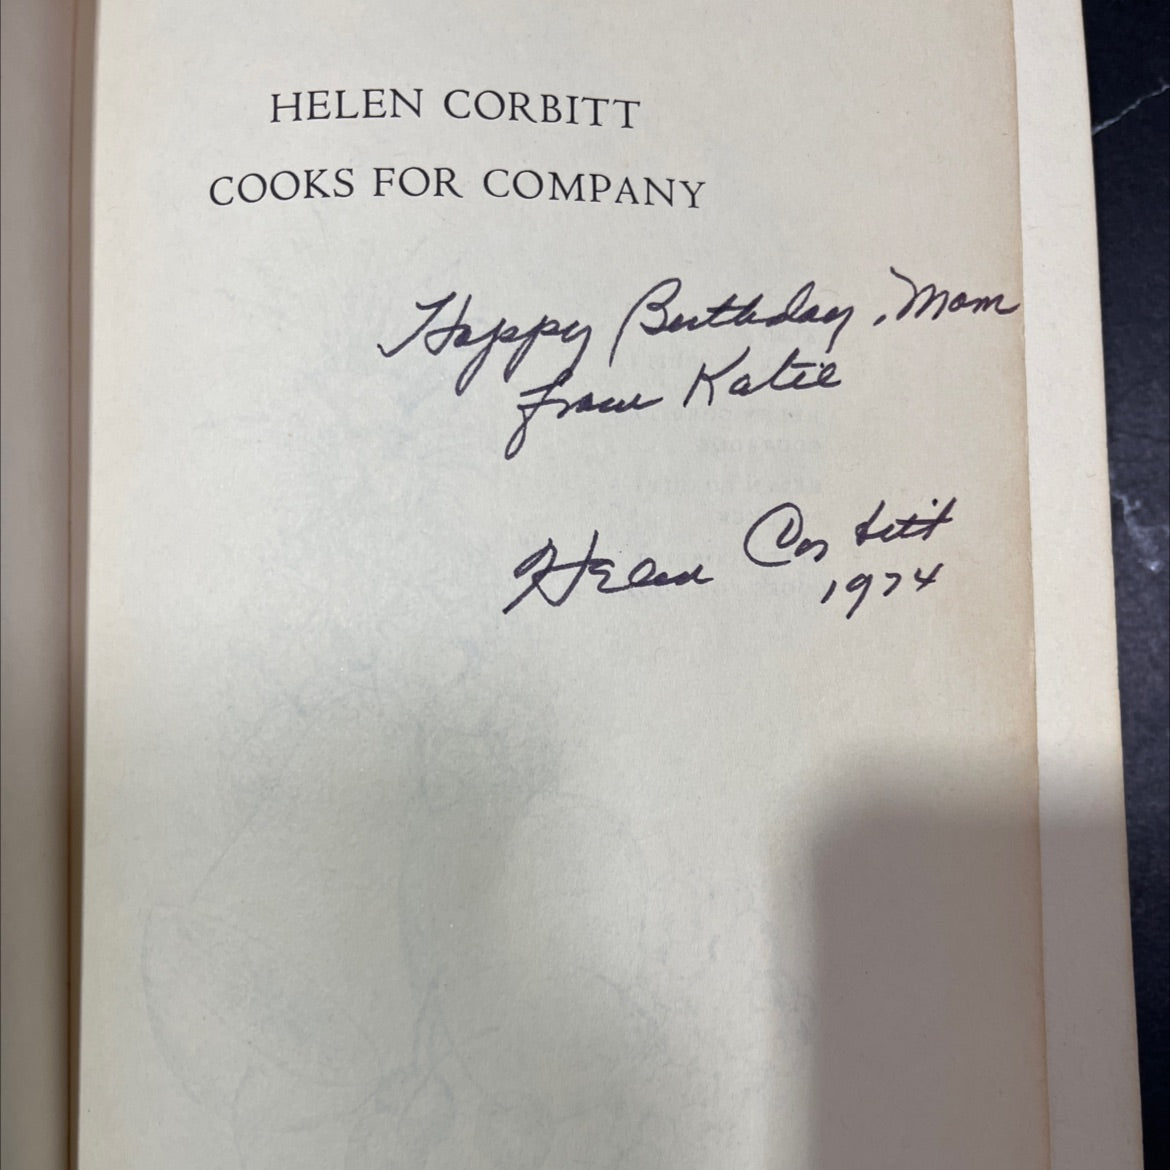 HELEN CORBITT
COOKS FOR COMPANY
Happy Birthday, Mom
from Katie
Helen Corbitt
1974